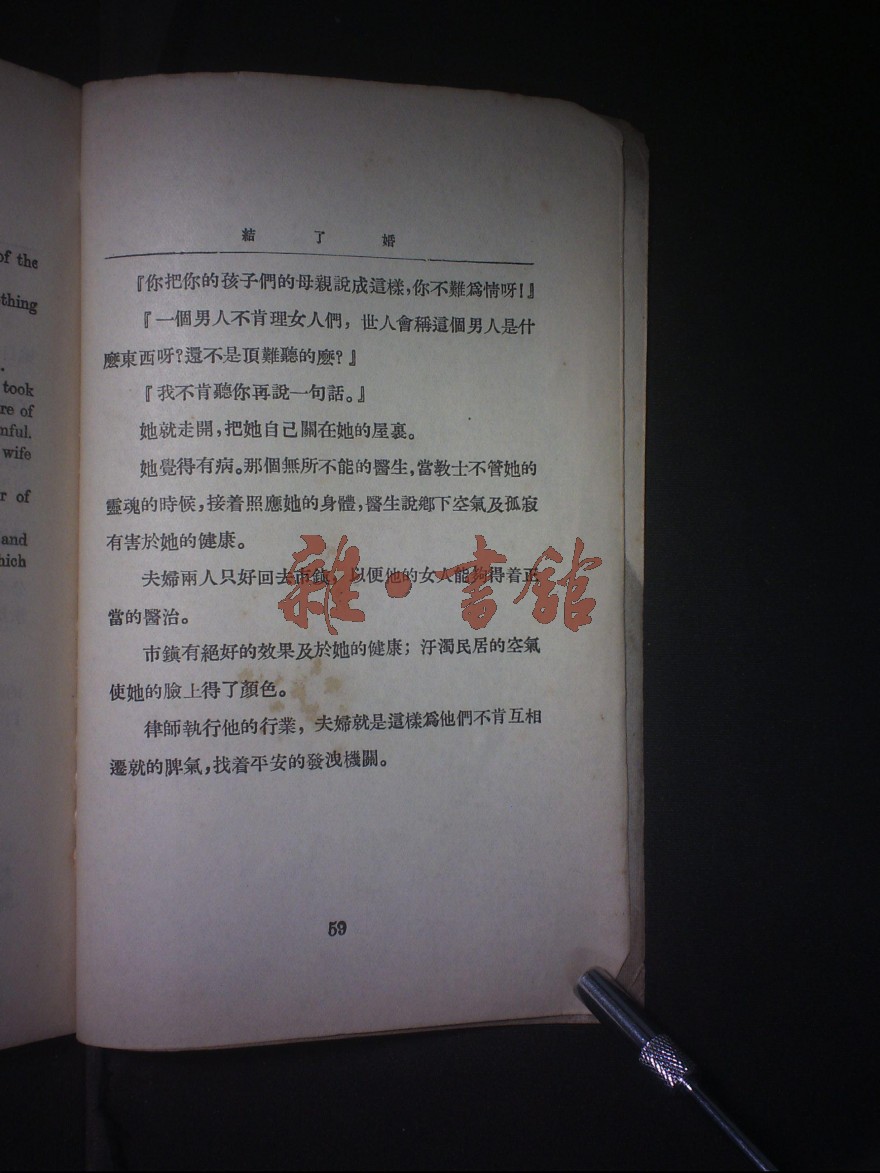 of the
thing
took
re of
nful.
wife
r of
and
hich
結了婚
『你把你的孩子們的母親說成這樣，你不難爲情呀！』
『一個男人不肯理女人們，世人會稱這個男人是什
麽東西呀？還不是頂難聽的麽？』
『我不肯聽你再說一句話。』
她就走開，把她自己關在她的屋裏。
她覺得有病。那個無所不能的醫生，當教士不管她的
靈魂的時候，接着照應她的身體，醫生說鄉下空氣及孤寂
有害於她的健康。
夫婦兩人只好回去市鎭，以便他的女人能夠得着正
當的醫治。
市鎭有絕好的效果及於她的健康；汙濁民居的空氣
使她的臉上得了顏色。
律師執行他的行業，夫婦就是這樣爲他們不肯互相
遷就的脾氣，找着平安的發洩機關。
59
雜·書館